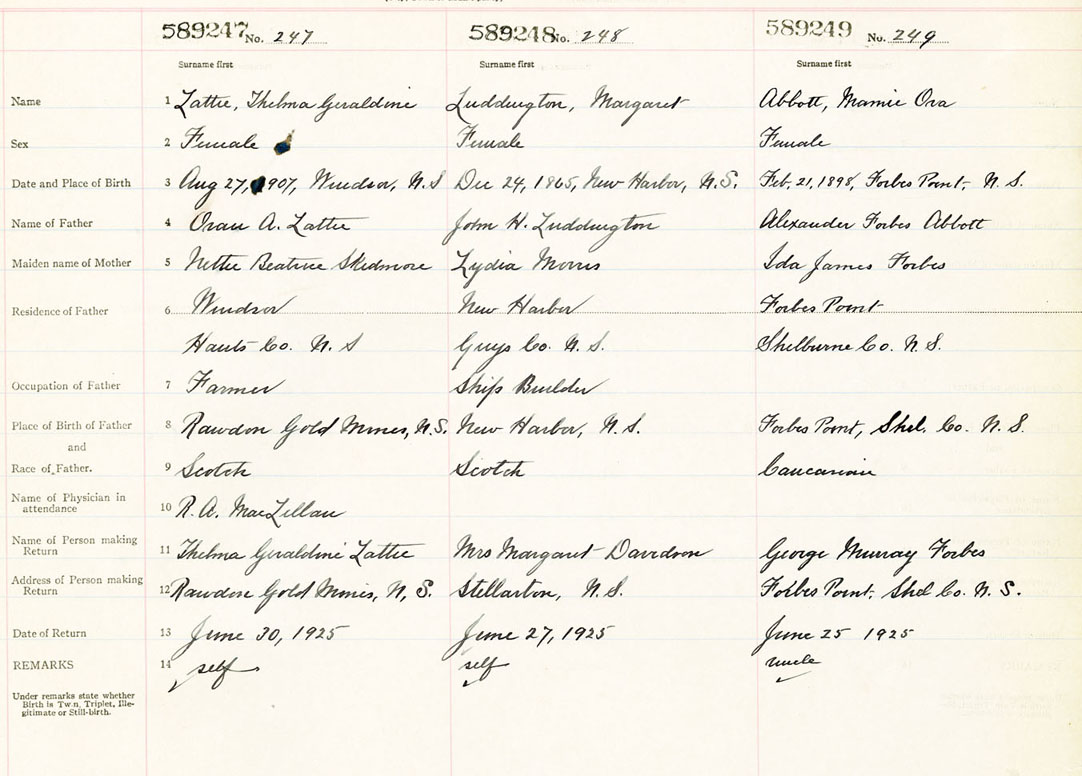 589247 No. 247 589248 No. 248 589249 No. 249
Surname first Surname first Surname first
Name 1 Lattie, Thelma Geraldine Luddington, Margaret Abbott, Mamie Ora
Sex 2 Female Female Female
Date and Place of Birth 3 Aug 27, 1907, Windsor, N.S Dec 24, 1865, New Harbor, N.S. Feb. 21, 1898, Forbes Point, N.S.
Name of Father 4 Oran A. Lattie John H. Luddington Alexander Forbes Abbott
Maiden name of Mother 5 Nettie Beatrice Skidmore Lydia Morris Ida James Forbes
Residence of Father 6 Windsor New Harbor Forbes Point
Hants Co. N.S Guys Co. N.S. Shelburne Co. N.S.
Occupation of Father 7 Farmer Ship Builder
Place of Birth of Father 8 Rawdon Gold Mines, N.S. New Harbor, N.S. Forbes Point, Shel. Co. N.S.
and
Race of Father. 9 Scotch Scotch Caucasian
Name of Physician in
attendance 10 R.A. MacLellan
Name of Person making
Return 11 Thelma Geraldine Lattie Mrs Margaret Davidson George Murray Forbes
Address of Person making
Return 12 Rawdon Gold Mines, N.S. Stellarton, N.S. Forbes Point, Shel Co. N.S.
Date of Return 13 June 30, 1925 June 27, 1925 June 25 1925
REMARKS 14 self self uncle
Under remarks state whether
Birth is Twin, Triplet, Ille-
gitimate or Still-birth.